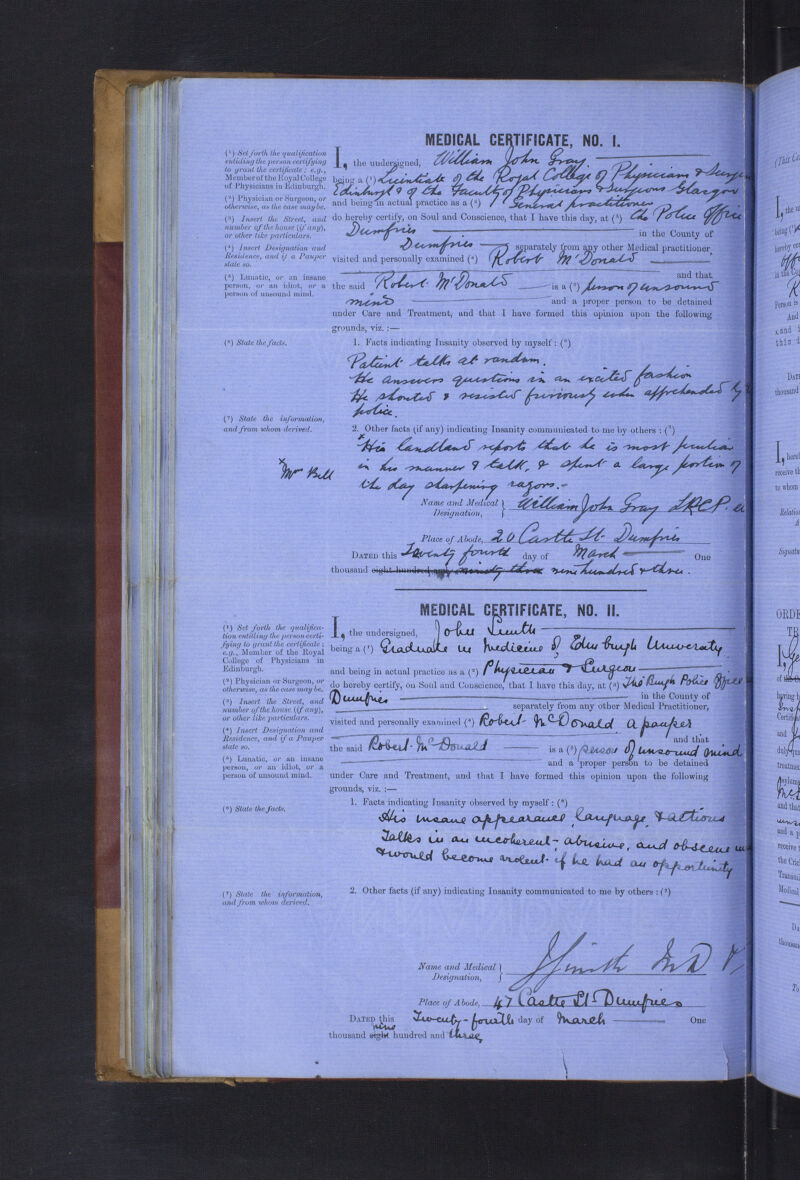 MEDICAL CERTIFICATE, NO. I.
(¹) Set forth the qualification
entitling the person certifying
to grant the certificate; e.g.,
Member of the Royal College
of Physicians in Edinburgh.
(²) Physician or Surgeon, or
otherwise, as the case may be.
(³) Insert the Street, and
number of the house (if any),
or other like particulars.
(⁴) Insert Designation and
Residence, and if a Pauper
state so.
(⁵) Lunatic, or an insane
person, or an idiot, or a
person of unsound mind.
(⁶) State the facts.
(⁷) State the information,
and from whom derived.
I, the undersigned, William John Gray
being a (¹) Licentiate of the Royal College of Physicians &
Edinburgh & of the Faculty of Physicians & Surgeons Glasgow
and being in actual practice as a (²) General practitioner
do hereby certify, on Soul and Conscience, that I have this day, at (³) the Police Office
Dumfries in the County of
Dumfries separately from any other Medical practitioner,
visited and personally examined (⁴) Robert McDonald
and that
the said Robert McDonald is a (⁵) person of unsound
mind and a proper person to be detained
under Care and Treatment, and that I have formed this opinion upon the following
grounds, viz. :—
1. Facts indicating Insanity observed by myself : (⁶)
Patient talks at random.
He answers questions in an excited fashion
He shouted & resisted furiously when apprehended by
police.
2. Other facts (if any) indicating Insanity communicated to me by others : (⁷)
x His landland reports that he is most peculiar
x Mrs Bell
in his manner & talk, & spent a large portion of
the day sharpening razors.-
Name and Medical Designation, } William John Gray LRCP
Place of Abode, 20 Castle St. Dumfries
DATED this Twenty fourth day of March One
thousand eight hundred and ninety three nine hundred & three.
MEDICAL CERTIFICATE, NO. II.
(¹) Set forth the qualifica-
tion entitling the person certi-
fying to grant the certificate;
e.g., Member of the Royal
College of Physicians in
Edinburgh.
(²) Physician or Surgeon, or
otherwise, as the case may be.
(³) Insert the Street, and
number of the house (if any),
or other like particulars.
(⁴) Insert Designation and
Residence, and if a Pauper
state so.
(⁵) Lunatic, or an insane
person, or an idiot, or a
person of unsound mind.
(⁶) State the facts.
(⁷) State the information,
and from whom derived.
I, the undersigned, John Smith
being a (¹) Graduate in Medicine of Edinburgh University
and being in actual practice as a (²) Physician & Surgeon
do hereby certify, on Soul and Conscience, that I have this day, at (³) The Burgh Police Office
Dumfries in the County of
separately from any other Medical Practitioner,
visited and personally examined (⁴) Robert McDonald a pauper
and that
the said Robert McDonald is a (⁵) person of unsound mind
and a proper person to be detained
under Care and Treatment, and that I have formed this opinion upon the following
grounds, viz. :—
1. Facts indicating Insanity observed by myself : (⁶)
His insane appearance language & actions
Talks in an incoherent - abusive, and obscene
& would become violent if he had an opportunity
2. Other facts (if any) indicating Insanity communicated to me by others : (⁷)
Name and Medical Designation, } J Smith MD
Place of Abode, 47 Castle St. Dumfries
DATED this Twenty-fourth day of March One
nine
thousand eight hundred and three